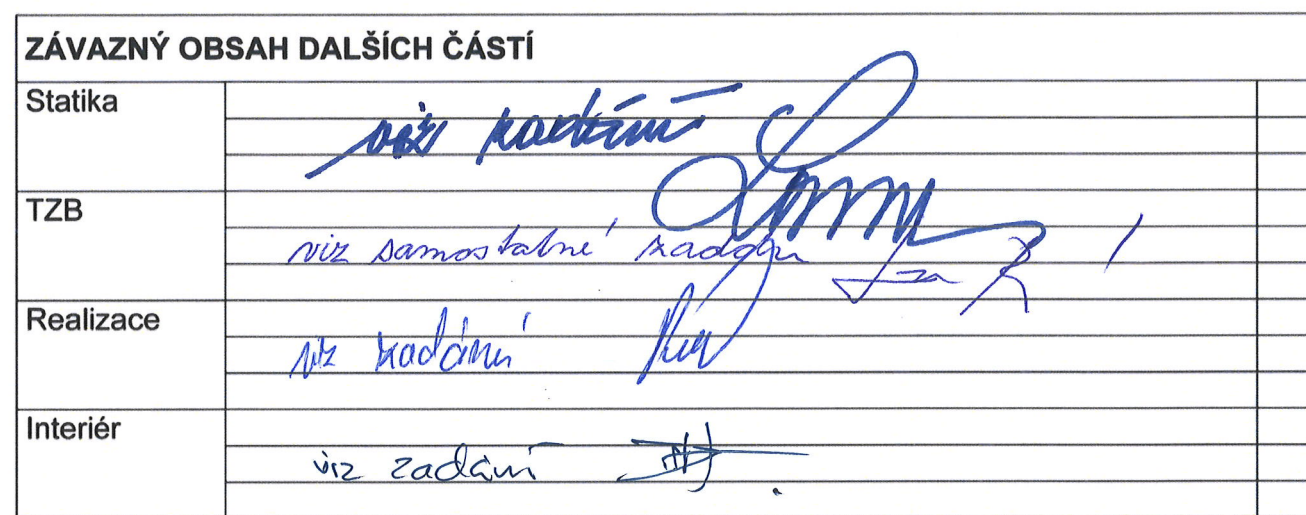 ZÁVAZNÝ OBSAH DALŠÍCH ČÁSTÍ
Statika
viz zadání
TZB
viz samostatné zadání
Realizace
viz zadání
Interiér
viz zadání